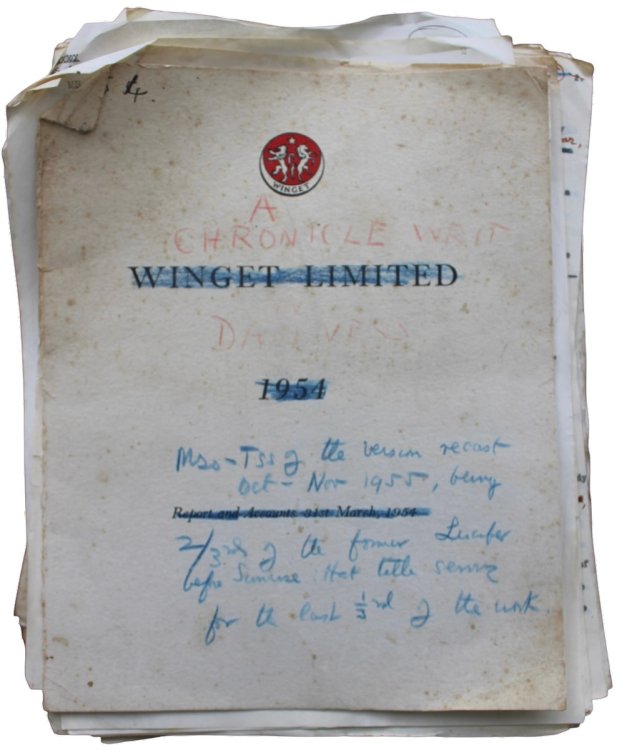 4.
WINGET
A
CHRONICLE WRIT
WINGET LIMITED
DARKNESS
1954
Mss – Tss of the version recast
Oct – Nov 1955, being
Report and Accounts 31st March, 1954
2/3rds of the former Lucifer
before Sunrise: that title serving
for the last 1/3rd of the work.